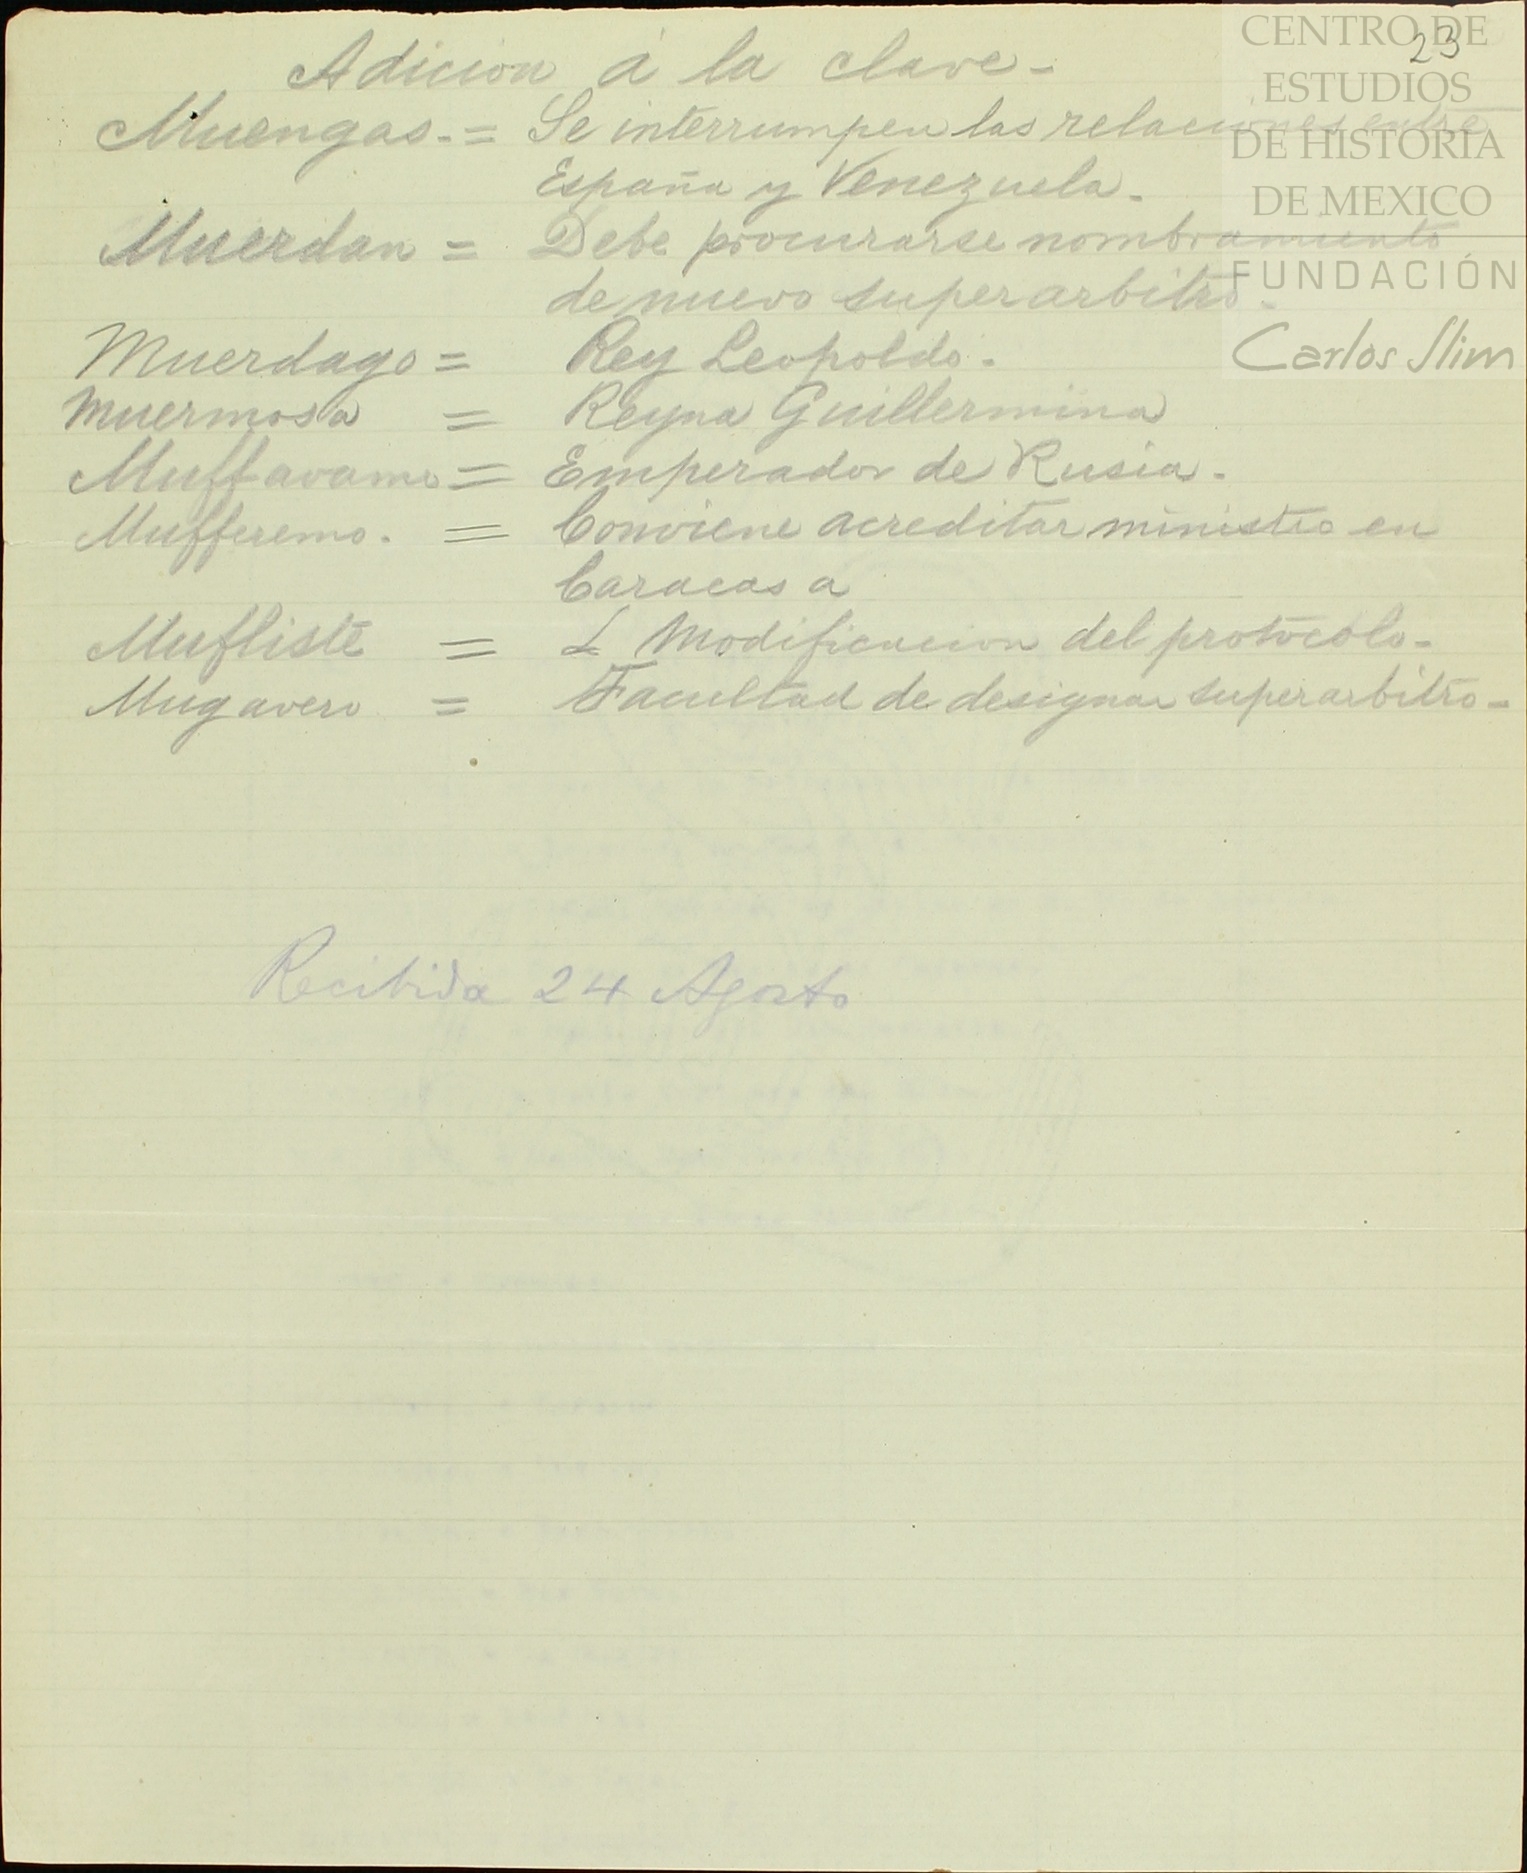 23
Adicion á la clave-
Muengas.= Se interrumpen las relaciones entre
España y Venezuela-
Muerdan = Debe procurarse nombramiento
de nuevo superarbitro-
Muerdago = Rey Leopoldo-
Muermosa = Reyna Guillermina
Muffavamo = Emperador de Rusia-
Mufferemo. = Conviene acreditar ministro en
Caracas a
Mufliste = Modificacion del protocolo-
Mugavero = Facultad de designar superarbitro-
Recibida 24 Agosto
CENTRO DE
ESTUDIOS
DE HISTORIA
DE MEXICO
FUNDACIÓN
Carlos Slim